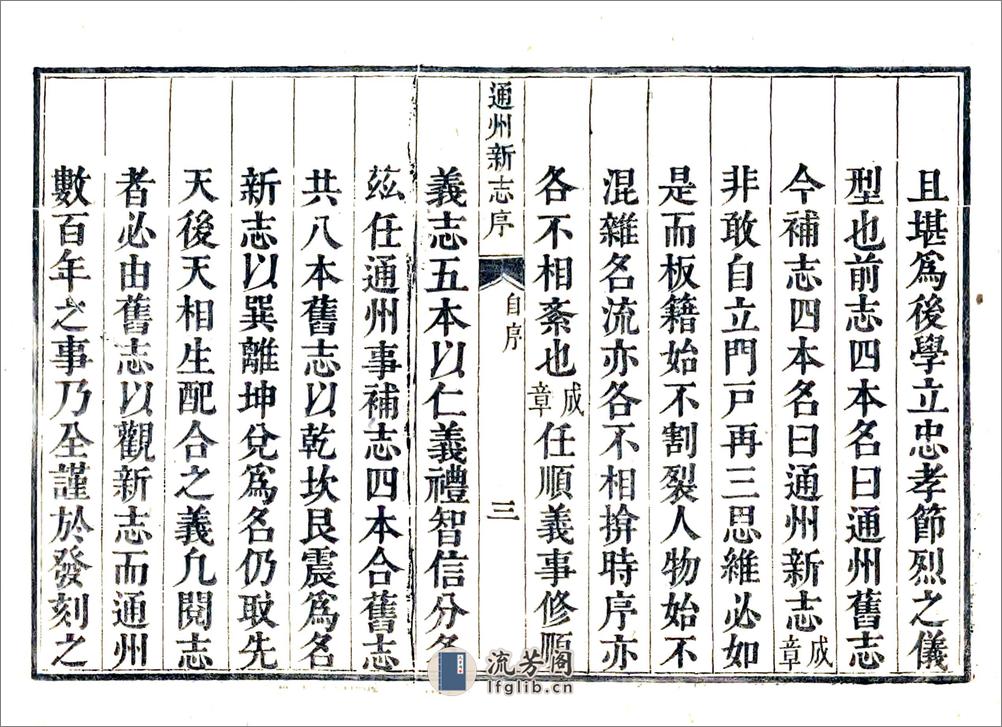 且堪爲後學立忠孝節烈之儀
型也前志四本名曰通州舊志
今補志四本名曰通州新志成章
非敢自立門戸再三思維必如
是而板籍始不割裂人物始不
混雜名流亦各不相揜時序亦
各不相紊也成章任順義事修順
通州新志序
自序
三
義志五本以仁義禮智信分名
茲任通州事補志四本合舊志
共八本舊志以乾坎艮震爲名
新志以巽離坤兌爲名仍取先
天後天相生配合之義凡閱志
者必由舊志以觀新志而通州
數百年之事乃全謹於發刻之
流芳閣
lfglib.cn